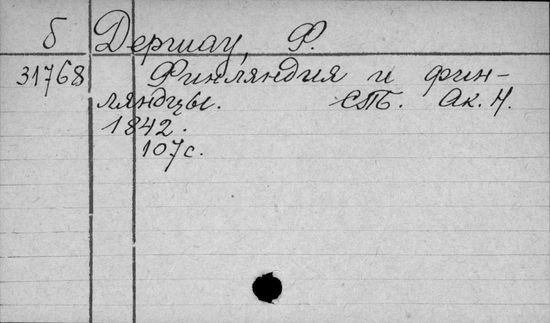 б Дершау, Ф.
31768 Финляндия и фин-
ляндцы. СПБ. Ак. Н.
1842.
107 с.